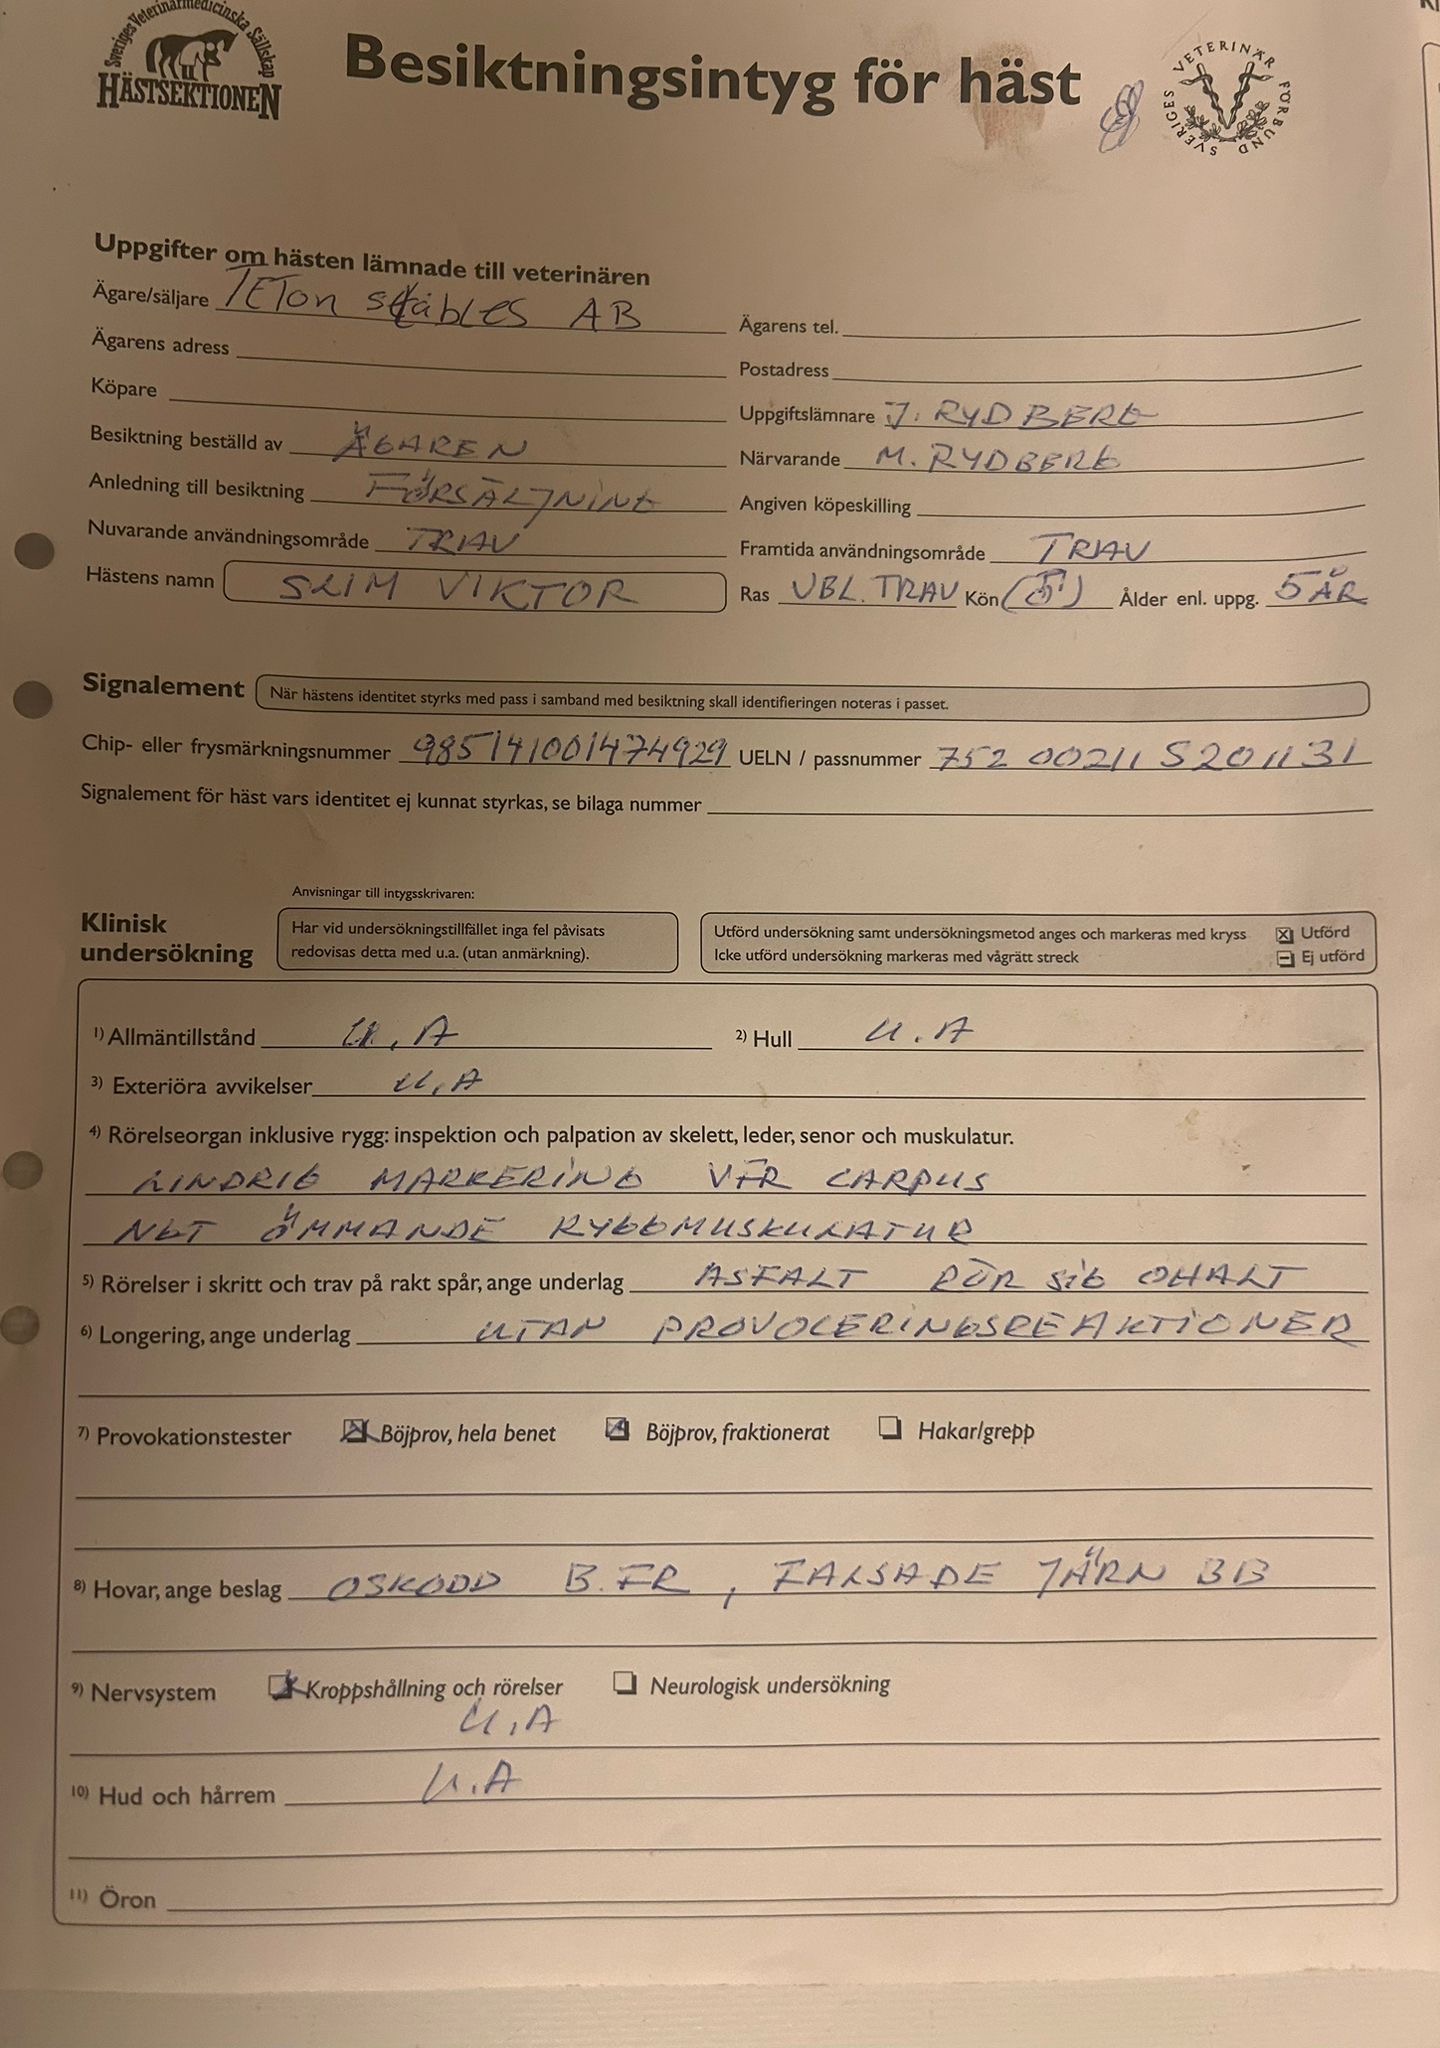 Sveriges Veterinärmedicinska Sällskap
HÄSTSEKTIONEN
Besiktningsintyg för häst
SVERIGES VETERINÄR FÖRBUND
Uppgifter om hästen lämnade till veterinären
Ägare/säljare TETON StäbLES AB
Ägarens tel.
Ägarens adress
Postadress
Köpare
Uppgiftslämnare J. RYDBERG
Besiktning beställd av ÄGAREN
Närvarande M. RYDBERG
Anledning till besiktning FÖRSÄLJNING
Angiven köpeskilling
Nuvarande användningsområde TRAV
Framtida användningsområde TRAV
Hästens namn SLIM VIKTOR
Ras VBL. TRAV Kön (♂) Ålder enl. uppg. 5 ÅR
Signalement När hästens identitet styrks med pass i samband med besiktning skall identifieringen noteras i passet.
Chip- eller frysmärkningsnummer 985141001474929 UELN / passnummer 752 00211 S201131
Signalement för häst vars identitet ej kunnat styrkas, se bilaga nummer
Anvisningar till intygsskrivaren:
Klinisk undersökning
Har vid undersökningstillfället inga fel påvisats
redovisas detta med u.a. (utan anmärkning).
Utförd undersökning samt undersökningsmetod anges och markeras med kryss Utförd
Icke utförd undersökning markeras med vågrätt streck Ej utförd
1) Allmäntillstånd U.A
2) Hull U.A
3) Exteriöra avvikelser U.A
4) Rörelseorgan inklusive rygg: inspektion och palpation av skelett, leder, senor och muskulatur.
LINDRIG MARKERING VFR CARPUS
NGT ÖMMANDE RYGGMUSKULATUR
5) Rörelser i skritt och trav på rakt spår, ange underlag ASFALT RÖR SIG OHALT
6) Longering, ange underlag UTAN PROVOCERINGSREAKTIONER
7) Provokationstester Böjprov, hela benet Böjprov, fraktionerat Hakar/grepp
8) Hovar, ange beslag OSKODD B.FR, FALSADE JÄRN BB
9) Nervsystem Kroppshållning och rörelser Neurologisk undersökning
U.A
10) Hud och hårrem U.A
11) Öron